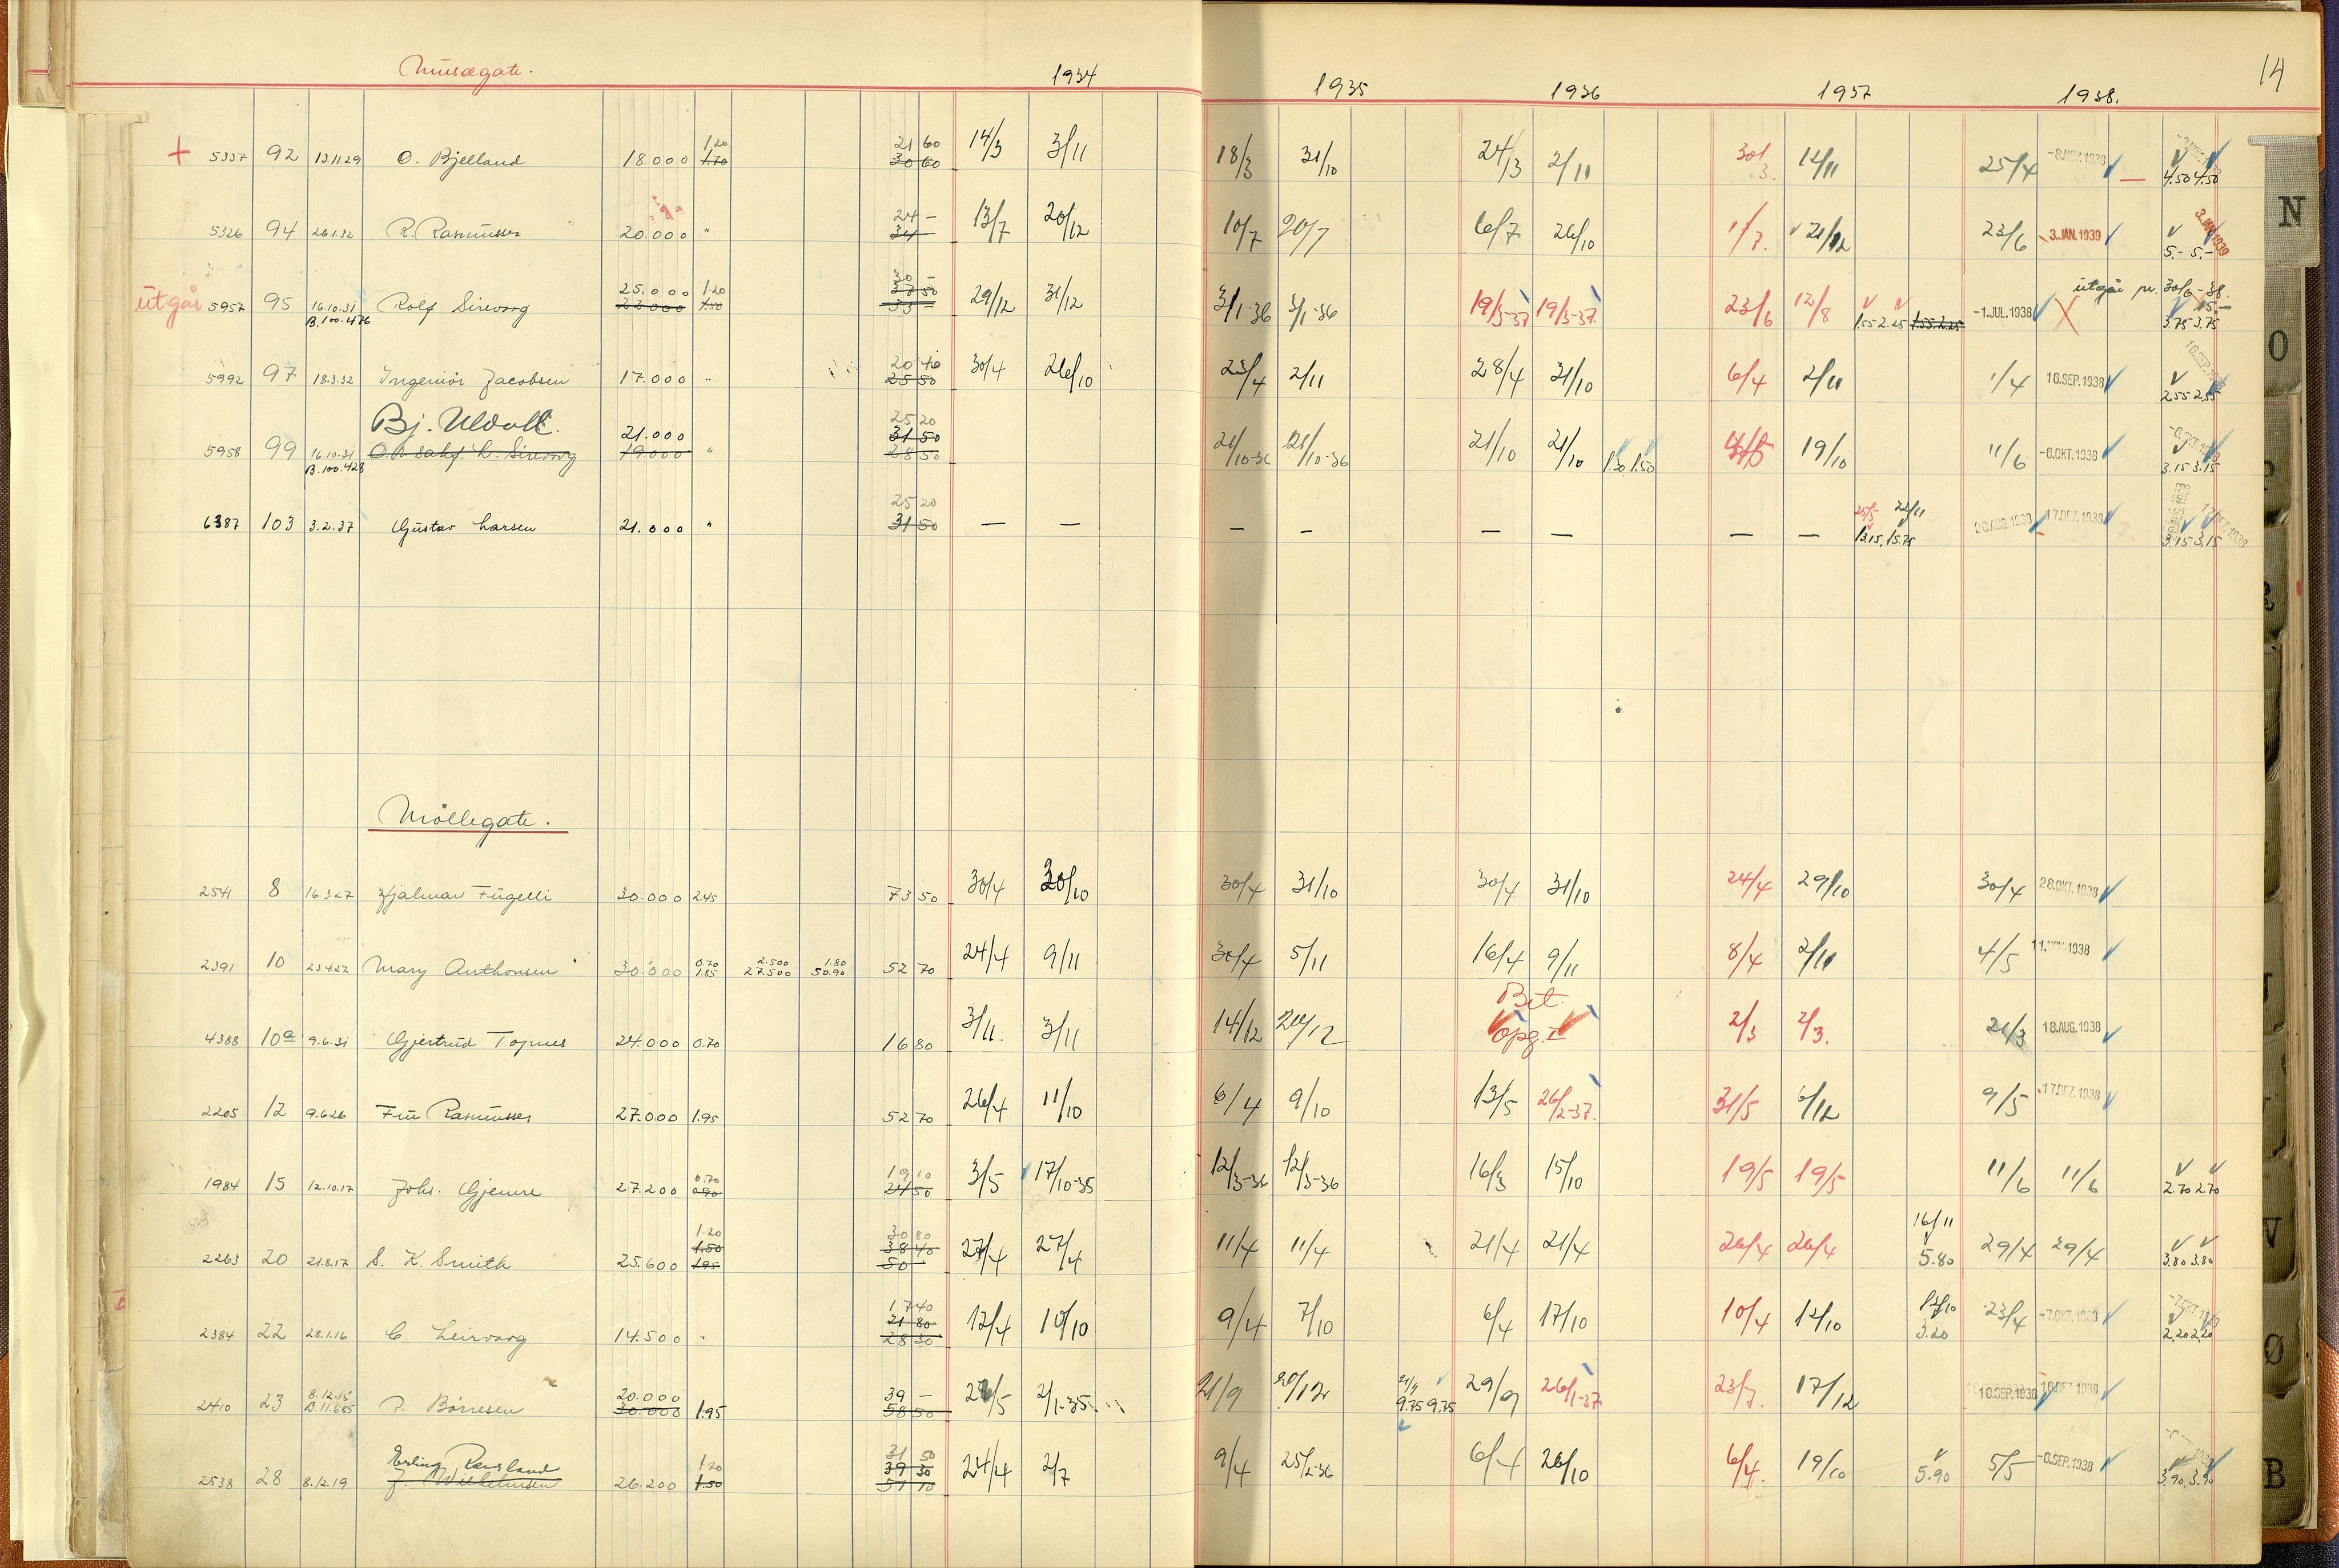 Musægate.
1934 1935 1936 1937 1938. 14
+ 5357 92 13.11.29 O. Bjelland 18.000 1.20 1.70 21 60 30 60 14/3 3/11 18/3 31/10 24/3 2/11 30/3. 12/11 25/4 -8.NOV.1938 4.50 4.50
5326 94 26.1.32 R. Rasmussen 20.000 " 24 - 34 - 13/7 20/12 10/7 20/7 6/7 26/10 1/7. 21/12 23/6 3.JAN.1939 5.- 5.- 3.JAN.1939
utgår pr. 30/6-38.
utgår 5957 95 16.10.31 B.100.476 Rolf Sirevaag 25.000 22.000 1.20 1.50 30 - 37 50 33 - 29/12 31/12 3/1-36 3/1-36 19/3-37 19/3-37. 23/6 12/8 1.55 2.25 1.55 2.25 -1.JUL.1938 15.- 3.75 3.75
5992 97 18.3.32 Ingeniør Jacobsen 17.000 " 20 40 25 50 30/4 26/10 23/4 2/11 28/4 31/10 6/4 2/11 1/4 16.SEP.1938 2.55 2.55
Bj. Uldall.
5958 99 16.10.31 B.100.428 L. Sirevaag 21.000 19.000 " 25 20 31 50 28 50 21/10-36 21/10-36 21/10 21/10 1.50 1.50 19/10 11/6 -6.OKT.1938 3.15 3.15
6387 103 3.2.37 Gustav Larsen 21.000 " 25 20 31 50 — — — — — — — — 25/5 22/11 13.15, 15.75 20.AUG.1938 17.DEZ.1938 3.15 3.15 17.DEZ.1938
Möllegate.
2541 8 16.3.27 Hjalmar Fugelli 30.000 2.45 73 50 30/4 30/10 30/4 31/10 30/4 31/10 24/4 29/10 30/4 28.OKT.1938
2391 10 23.4.27 Mary Anthonsen 30.000 0.70 1.85 2.500 27.500 1.80 50.90 52 70 24/4 9/11 30/4 5/11 16/4 9/11 8/4 2/11 4/5 11.NOV.1938
4388 10a 9.6.31 Gjertrud Topnes 24.000 0.70 16 80 3/11. 3/11 14/12 20/12 Bet. opg. I 2/3 2/3. 21/3 18.AUG.1938
2205 12 9.6.26 Fru Rasmussen 27.000 1.95 52 70 26/4 11/10 6/4 9/10 13/5 26/2-37. 31/5 6/12 9/5 17.DEZ.1938
1984 15 12.10.17 Johs. Gjemre 27.200 0.70 0.90 19 10 24 50 3/5 17/10-35 12/3-36 12/3-36 16/3 15/10 19/5 19/5 11/6 11/6 2.70 2.70
2263 20 21.8.17 S. K. Smith 25.600 1.20 1.50 1.95 30 80 38 40 50 27/4 27/4 11/4 11/4 21/4 21/4 26/4 26/4 16/11 5.80 29/4 29/4 3.80 3.80
2384 22 28.1.16 C. Leirvaag 14.500 " 17 40 21 80 28 30 12/4 10/10 9/4 7/10 6/4 17/10 10/4 12/10 12/10 3.20 23/4 -7.OKT.1938 2.20 2.20
2410 23 8.12.15 B.11.685 P. Börresen 20.000 30.000 1.95 39 - 58 50 2/1-35 21/9 20/12 21/9 9.75 9.75 29/9 26/1-37 23/7. 17/12 10.SEP.1938 16.DEZ.1938
Erling Rausland
2538 28 8.12.19 J. Wilhelmsen 26.200 1.20 1.50 31 50 39 30 51 10 24/4 2/7 9/4 25/2-36 6/4 26/10 6/4. 19/10 5.90 5/5 -6.SEP.1938 3.90 3.90
N
O
V
Ø
B